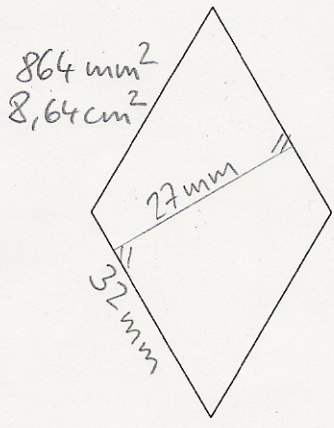 864 mm²
8,64 cm²
27 mm
32 mm